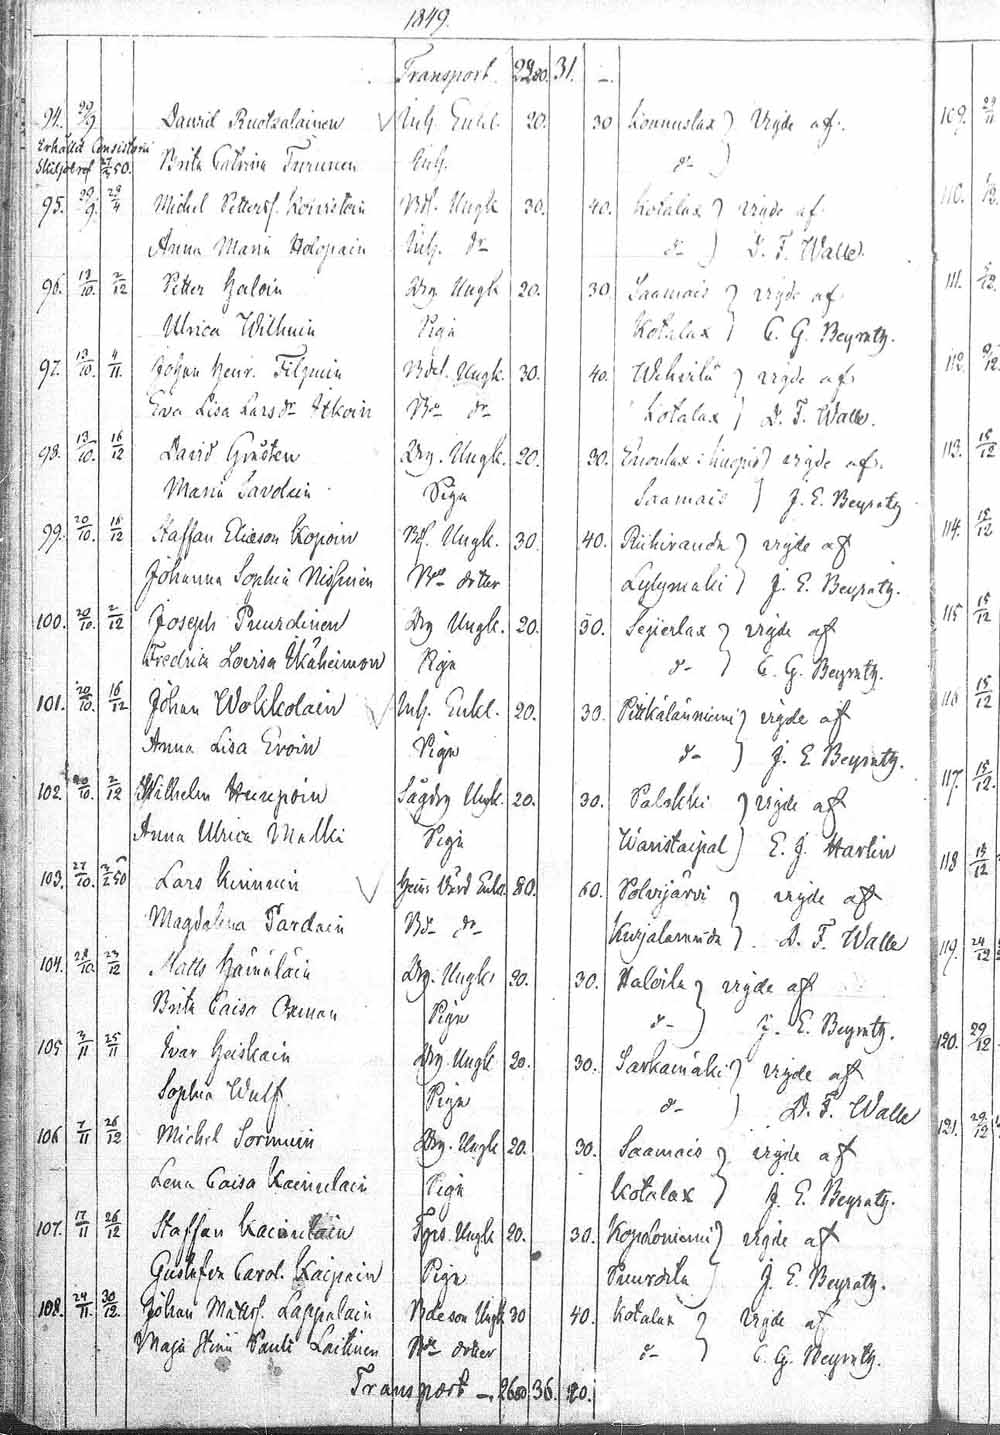 1849.
Transport. 2280. 31. –
94. 29/9 Dauvid Ruotsalainen Inh. Enkl. 20. 30 Konnuslax vigde af.
Erhållit Consistorii
Skiljobref 27/2 50. Brita Catrina Turunen Inh. d-
95. 29/9. 29/4 Michel Pettersf. Koivistoin Bdf. Ungk 30. 40. Kotalax vigde af
Anna Maria Holopain Inh. dr d- D. F. Walle.
96. 13/10. 2/12 Petter Haloin Drg. Ungk 20. 30. Saamais vigde af
Ulrica Wilhuin Piga Kotalax C. G. Beyratz.
97. 13/10. 4/11. Johan Henr. Filpuin Bdef. Ungk. 30. 40. Wehvilä vigde af
Eva Lisa Larsdr Itkoin Bde dr Kotalax D. F. Walle.
98. 13/10. 16/12 David Gråsten Drg. Ungk. 20. 30. Enonlax: Kuopio vigde af.
Maria Savolain Piga Saamais J. E. Beyratz
99. 20/10. 16/12 Staffan Eliæson Kopoin Bdf. Ungk. 30. 40. Riihiranda vigde af
Johanna Sophia Nissinen Bde dotter Lylymäki J. E. Beyratz.
100. 20/10. 2/12 Joseph Puurdinen Drg Ungk. 20. 30. vigde af
Fredrica Lovisa Wäheimon Piga d- C. G. Beyratz.
101. 20/10. 16/12 Johan Wokkolain Inh. Enkl. 20. 30. Pitkälänniemi vigde af
Anna Lisa Evoin Piga d- J. E. Beyratz.
102. 20/10. 2/12 Wilhelm Huupoin Sågdrg Ungk. 20. 30. Palokki vigde af
Anna Ulrica Malki Piga Waristaipal E. J. Harlin
103. 27/10. 2/2 50 Lars Kinnuin Hem: Värd Enkl. 80. 60. Polvijärvi vigde af
Magdalena Pardain Bde dr Kurjalaranda D. F. Walle
104. 28/10. 23/12 Matts Hämäläin Drg. Ungk. 20. 30. Haloila vigde af
Brita Caisa Oxman Piga d- J. E. Beyratz.
105 3/11 25/11 Ivar Heiskain Drg. Ungk 20. 30. Sarkamäki vigde af
Sophia Wulf. Piga d- D. F. Walle
106 7/11 26/12 Michel Sormuin Drg. Ungk 20. 30. Saamais vigde af
Lena Caisa Kainulain Piga Kotalax J. E. Beyratz.
107. 17/11 26/12 Staffan Kainulain Tprs. Ungk 20. 30. Kopoloniemi vigde af
Gustafva Carol. Kaipain Piga Puurdila J. E. Beyratz.
108. 24/11. 30/12. Johan Mattsf. Lappalain Bdeson Ungk 30 40. Kotalax vigde af
Maja Stina Pauli Laitinen Bde dotter d- C. G. Beyratz.
Transport – 2680 36. 20.
109. 24/11
110.
111.
112.
113. 15/12
114. 15/12
115 15/12
116 15/12
117. 15/12.
118 15/12
119. 24/12
120. 29/12
121. 29/12